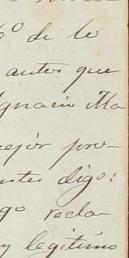 6º de le
antes que
Ignacio Ma
ejor pro-
digo:
go recla-
y legitimo